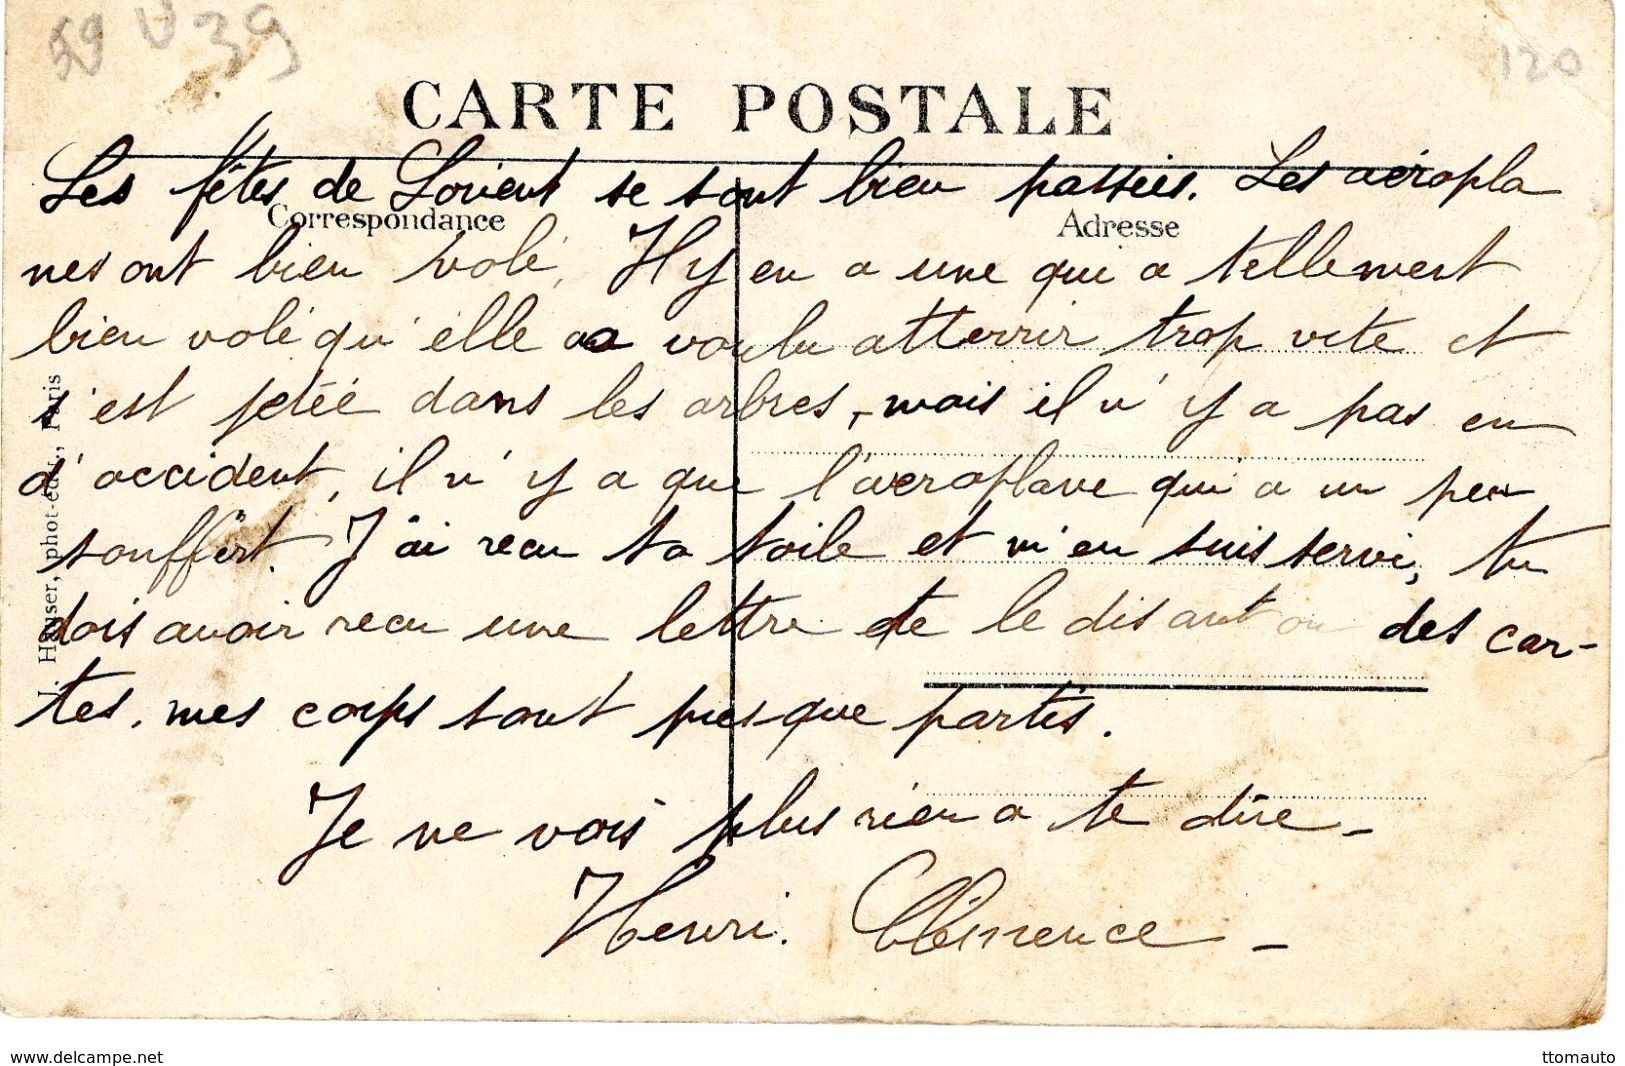 59 U 39
120
CARTE POSTALE
Les fêtes de Lorient se sont bien passées. Les aéropla
Correspondance
Adresse
nes ont bien volé. Il y en a une qui a tellement
bien volé qu'elle a voulu atterrir trop vite et
s'est jetée dans les arbres, mais il n'y a pas eu
d'accident, il n'y a que l'aeroplane qui a un peu
souffert. J'ai recu ta toile et m'en suis servi, tu
dois avoir recu une lettre te le disant ou des car-
tes. mes corps sont presque partis.
Je ne vois plus rien a te dire -
Henri. Clémence -
J. Hauser, phot-édit., Paris
www.delcampe.net
ttomauto